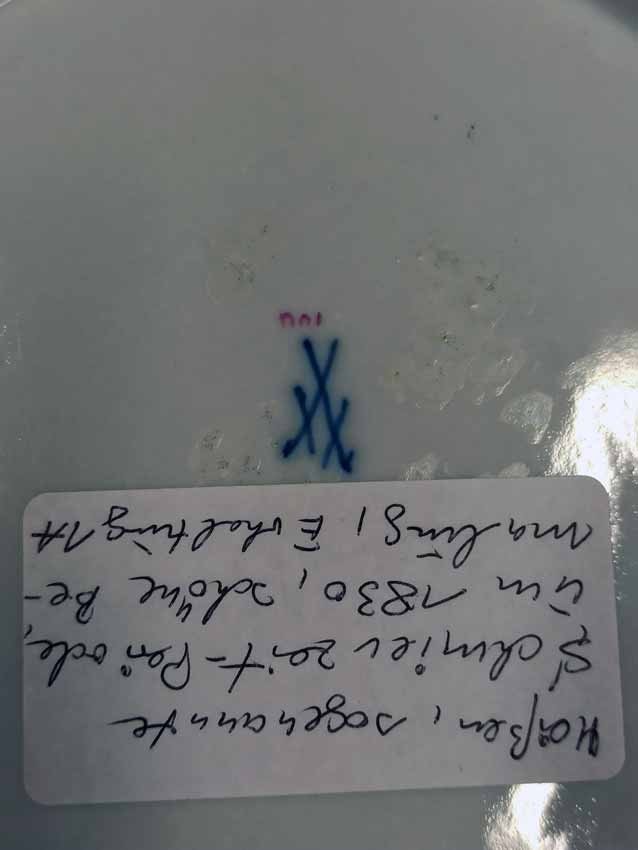 Meißen, sogenannte
Schmierzeit-Periode,
um 1830, schöne Be-
malung, Erhaltung 1A